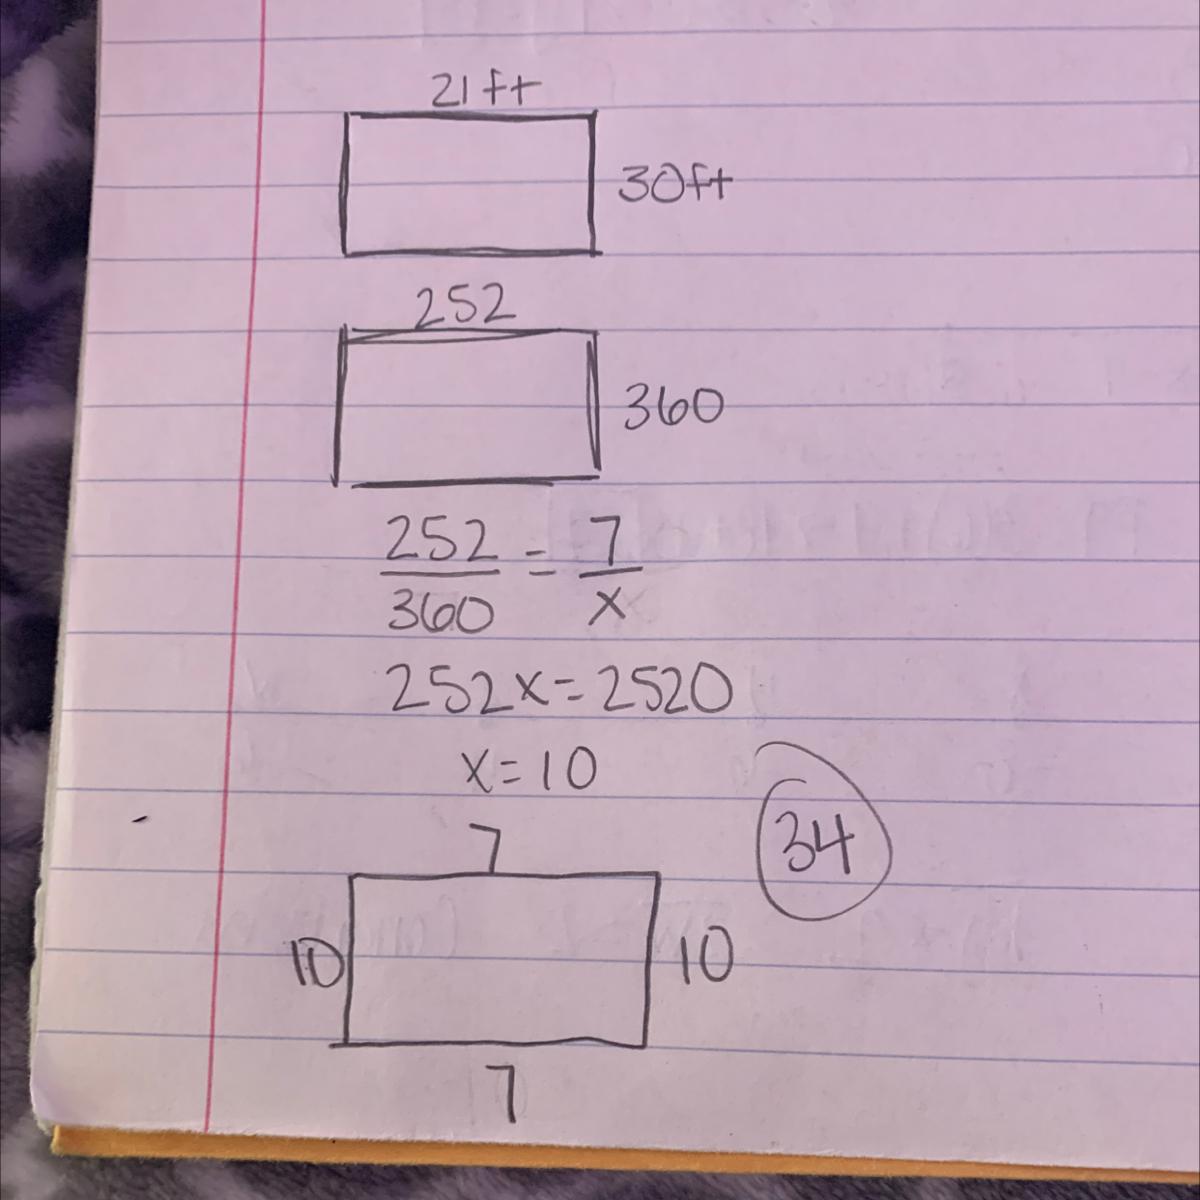 21ft
30ft
252
360
252/360 = 7/x
252x=2520
x=10
34
7
10 10
7